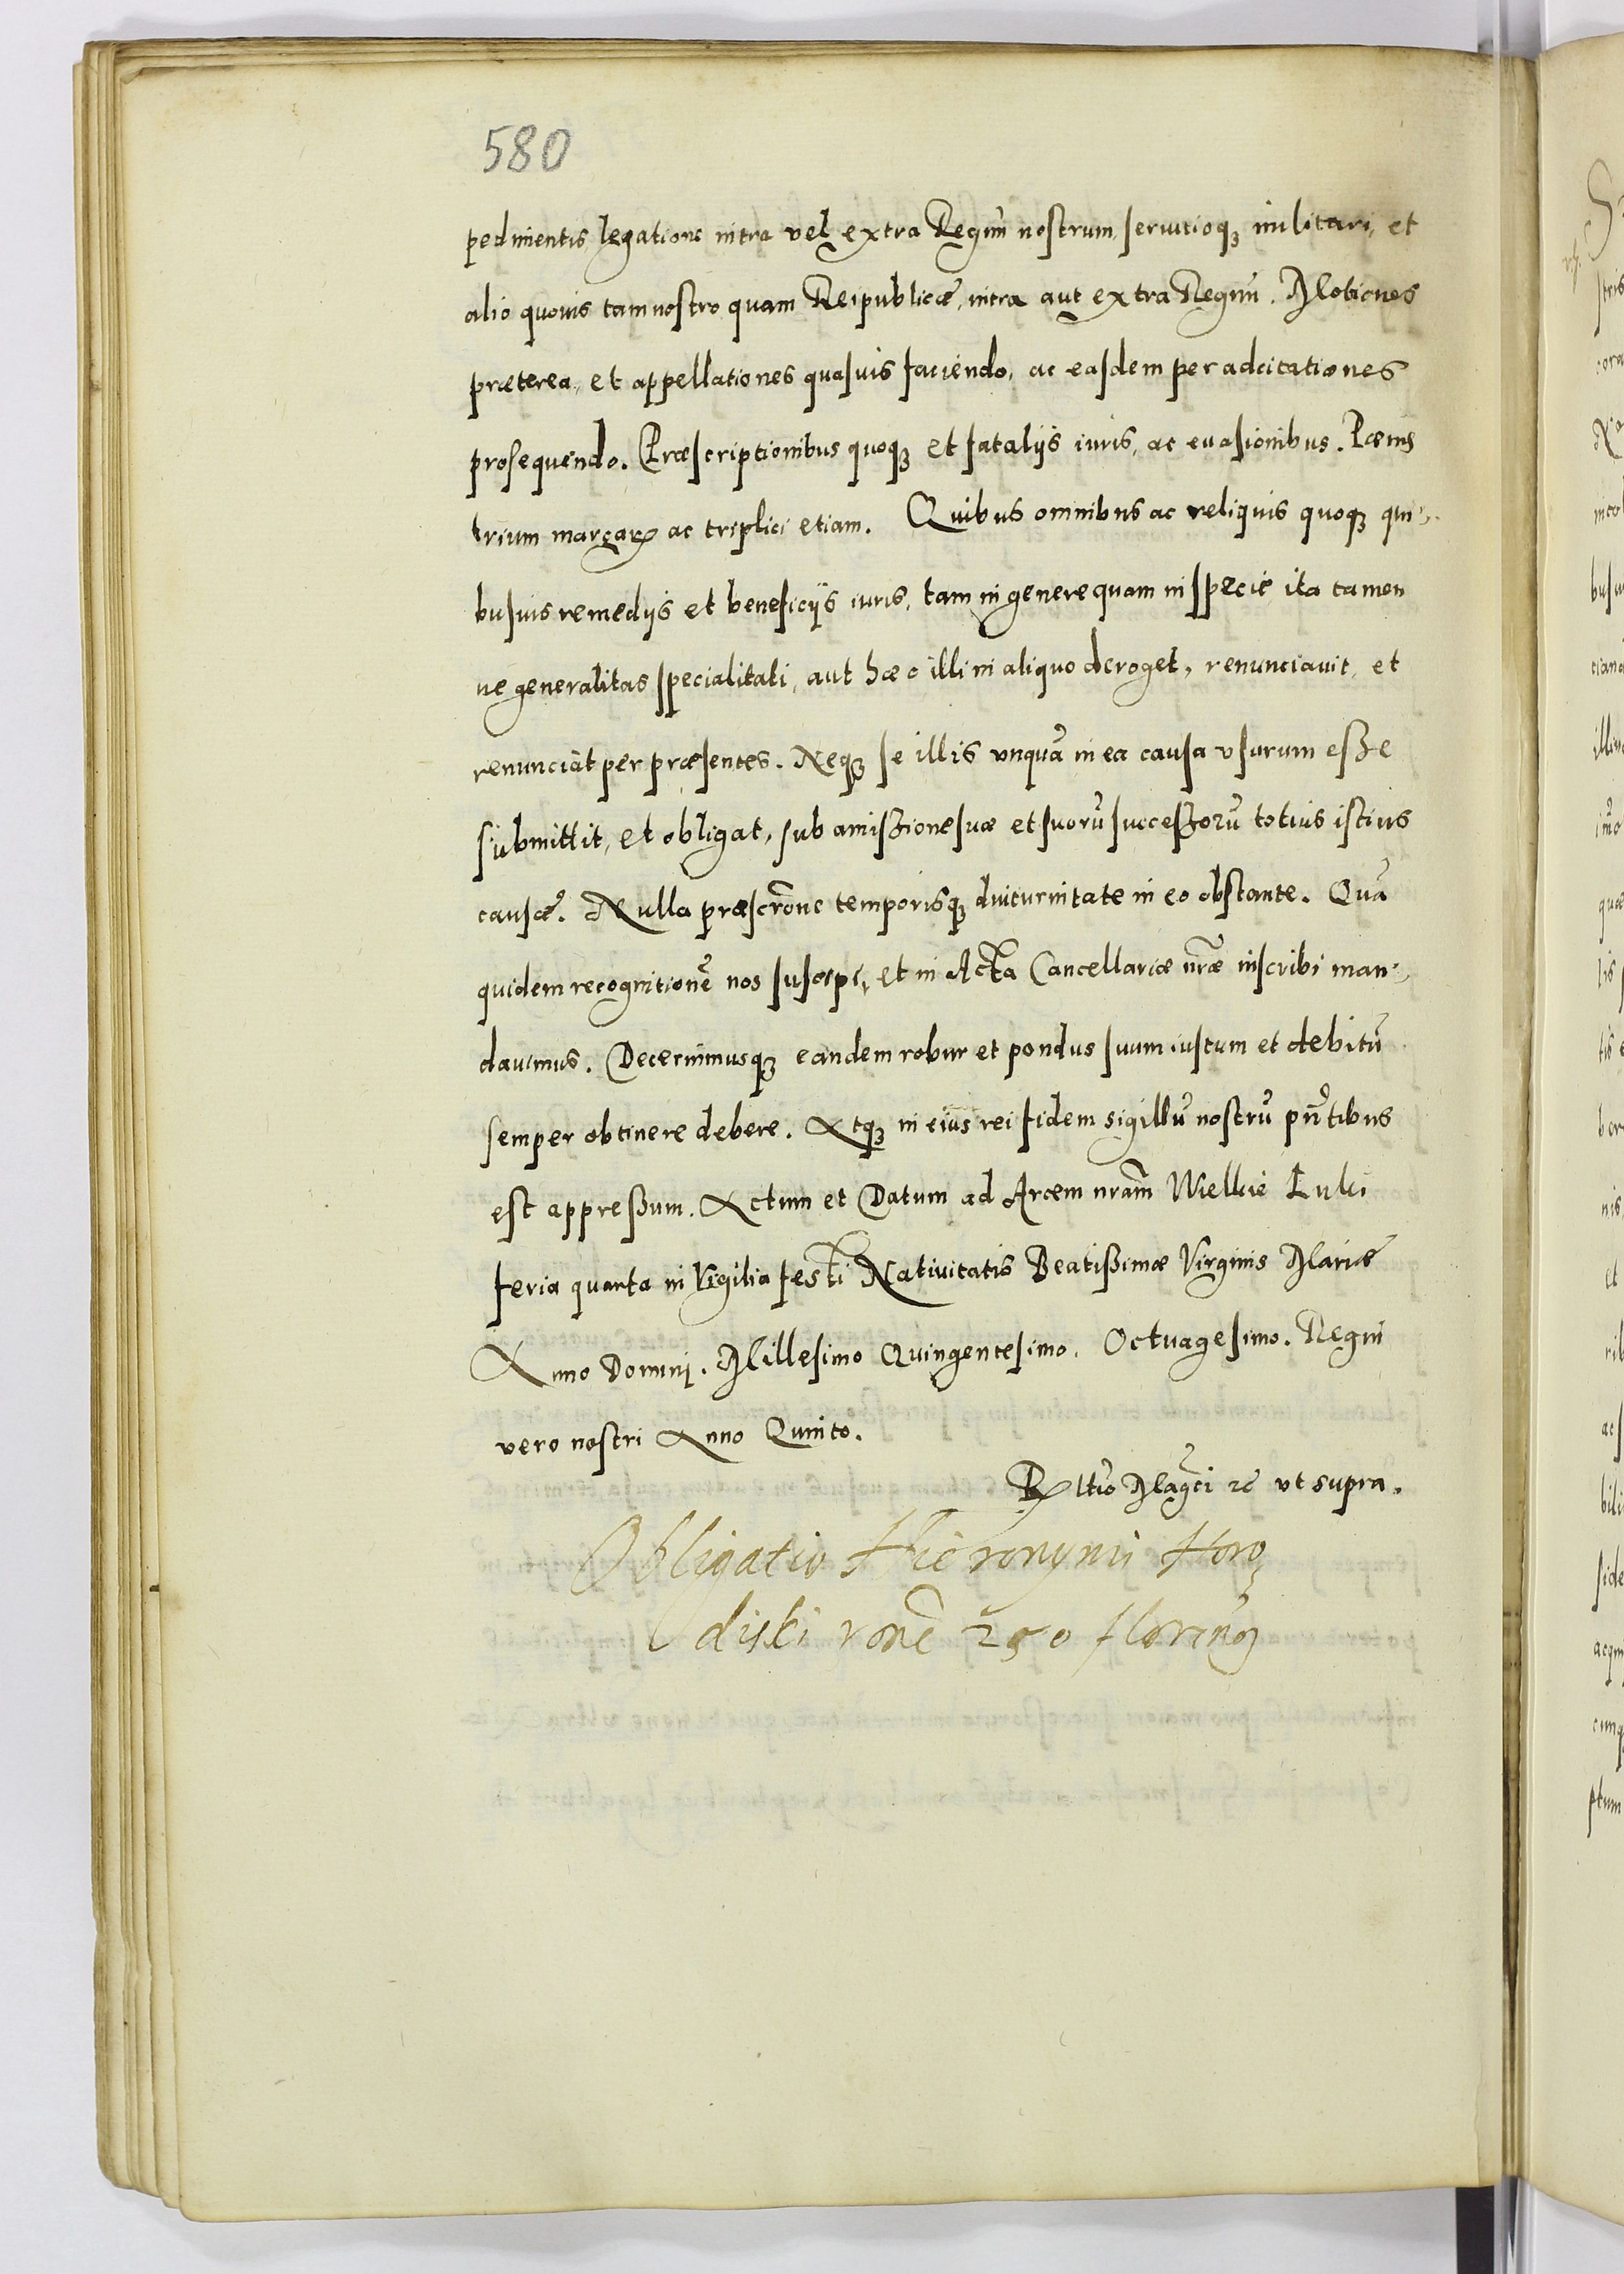 580
pedimentis, legatione intra vel extra Regnũ nostrum, seruitioqȝ militari, et
alio quouis tam nostro quam Reipublicæ, intra aut extra Regnũ. Motiones
præterea, et appellationes quasuis faciendo, ac easdem per adcitationes
prosequendo. Præscriptionibus quoqȝ et fatalijs iuris, ac euasionibus. Pœnis
trium marcarꝝ ac triplici etiam. Quibus omnibus ac reliquis quoqȝ qui-
busuis remedijs et beneficijs iuris, tam in genere quam in specie ita tamen
ne generalitas specialitati, aut hæc illi in aliquo deroget, renunciauit, et
renunciat per præsentes. Neqȝ se illis vnquã in ea causa vsurum esse
submittit, et obligat, sub amissione suæ et suorũ successorũ totius istius
causæ. Nulla præscrõne temporisqȝ diuturnitate in eo obstante. Quã
quidem recognitionẽ nos suscepi, et in Acta Cancellariæ nr̃æ inscribi man-
dauimus. Decernimusqȝ eandem robur et pondus suum iustum et debitũ
semper obtinere debere. Atqȝ in eius rei fidem sigillũ nostrũ pñtibus
est appressum. Actum et Datum ad Arcem nram̃ Wielkie Luki
feria quarta in Vigilia festi Natiuitatis Beatissimæ Virginis Mariæ
Anno Domini. Millesimo Quingentesimo. Octuagesimo. Regni
vero nostri Anno Quinto.
Rltio Magci ꝛc vt supra.
Obligatio Hieronymi Horo
diski rone 250 florenoꝝ